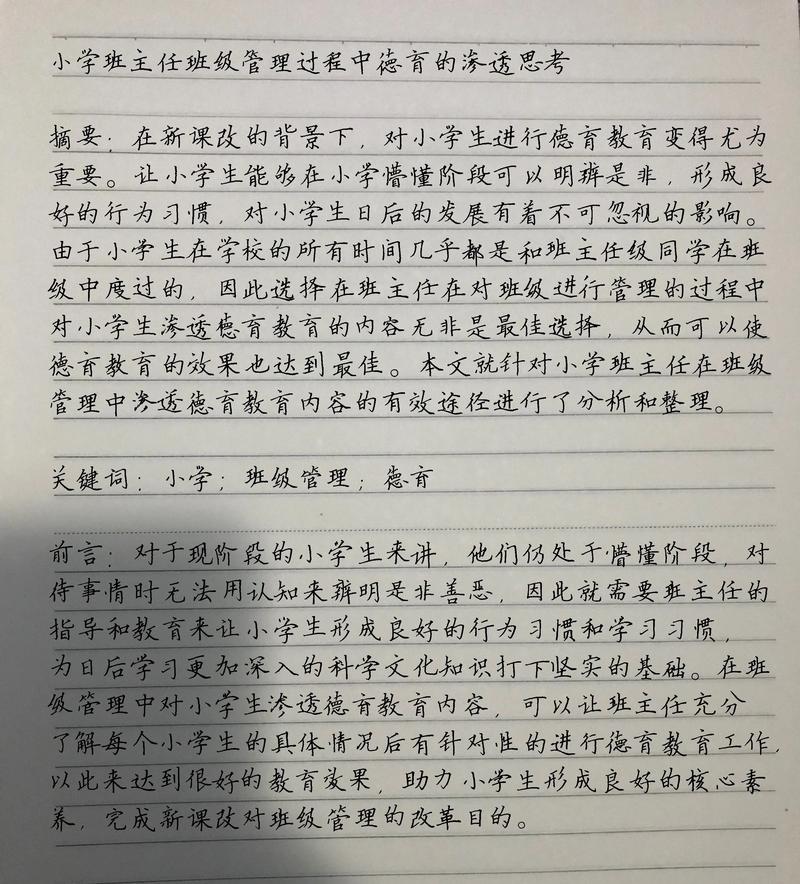 小学班主任班级管理过程中德育的渗透思考
摘要：在新课改的背景下，对小学生进行德育教育变得尤为
重要。让小学生能够在小学懵懂阶段可以明辨是非，形成良
好的行为习惯，对小学生日后的发展有着不可忽视的影响。
由于小学生在学校的所有时间几乎都是和班主任级同学在班
级中度过的，因此选择在班主任在对班级进行管理的过程中
对小学生渗透德育教育的内容无非是最佳选择，从而可以使
德育教育的效果也达到最佳。本文就针对小学班主任在班级
管理中渗透德育教育内容的有效途径进行了分析和整理。
关键词：小学；班级管理；德育
前言：对于现阶段的小学生来讲，他们仍处于懵懂阶段，对
待事情时无法用认知来辨明是非善恶，因此就需要班主任的
指导和教育来让小学生形成良好的行为习惯和学习习惯，
为日后学习更加深入的科学文化知识打下坚实的基础。在班
级管理中对小学生渗透德育教育内容，可以让班主任充分
了解每个小学生的具体情况后有针对性的进行德育教育工作，
以此来达到很好的教育效果，助力小学生形成良好的核心素
养，完成新课改对班级管理的改革目的。